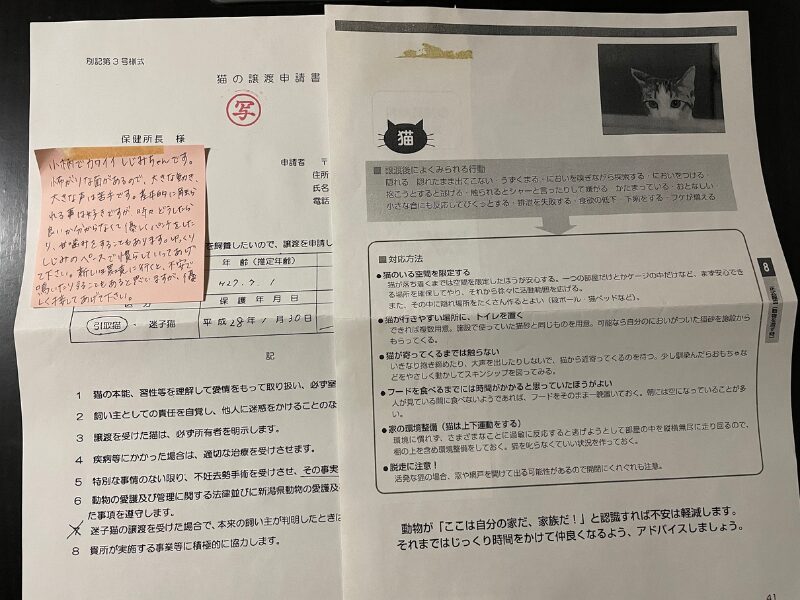 別記第3号様式
猫の譲渡申請書
写
保健所長 様
申請者 〒
住所
氏名
電話
小柄でカワイイしじみちゃんです。
怖がりな面があるので、大きな動き、
大きな声は苦手です。基本的に触ら
れる事は好きですが、時々どうしたら
良いか分からなくて優しくパンチをした
り、甘噛みをすることもあります。ゆっくり
しじみのペースで慣らしていってあげ
て下さい。新しい環境に行くと、不安で
鳴いたりすることもあると思いますが、優
しく接してあげて下さい。
を飼養したいので、譲渡を申請し
年齢(推定年齢)
H27.9.1
区分
保護年月日
引取猫・迷子猫
平成28年1月30日
記
1 猫の本能、習性等を理解して愛情をもって取り扱い、必ず室
2 飼い主としての責任を自覚し、他人に迷惑をかけることのな
3 譲渡を受けた猫は、必ず所有者を明示します。
4 疾病等にかかった場合は、適切な治療を受けさせます。
5 特別な事情のない限り、不妊去勢手術を受けさせ、その事実
6 動物の愛護及び管理に関する法律並びに新潟県動物の愛護及
た事項を遵守します。
7 迷子猫の譲渡を受けた場合で、本来の飼い主が判明したときは
8 貴所が実施する事業等に積極的に協力します。
猫
■ 譲渡後によくみられる行動
隠れる 隠れたまま出てこない・うずくまる・においを嗅ぎながら探索する・においをつける・
抱こうとすると逃げる・触られるとシャーと言ったりして嫌がる かたまっている・おとなしい
小さな音にも反応してびくっとする・排泄を失敗する・食欲の低下・下痢をする・フケが増える
■ 対応方法
●猫のいる空間を限定する
猫が落ち着くまでは空間を限定したほうが安心する。一つの部屋だけとかケージの中だけなど、まず安心でき
る場所を確保してやり、それから徐々に活動範囲を広げる。
また、その中に隠れ場所をたくさん作るとよい(段ボール 猫ベッドなど)。
●猫が行きやすい場所に、トイレを置く
できれば複数用意。施設で使っていた猫砂と同じものを用意。可能なら自分のにおいがついた猫砂を施設から
もらってくる。
●猫が寄ってくるまでは触らない
いきなり抱き締めたり、大声を出したりしないで、猫から近寄ってくるのを待つ。少し馴染んだらおもちゃな
どをやさしく動かしてスキンシップを図ってみる。
●フードを食べるまでには時間がかかると思っていたほうがよい
人が見ている間に食べないようであれば、フードをそのまま一晩置いておく。朝には空になっていることが多
い。
●家の環境整備(猫は上下運動をする)
環境に慣れず、さまざまなことに過敏に反応すると逃げようとして部屋の中を縦横無尽に走り回るので、
棚の上を含め環境整備をしておく。猫を叱らなくていい状況を作っておく。
●脱走に注意!
活発な猫の場合、窓や網戸を開けて出る可能性があるので開閉にくれぐれも注意。
動物が「ここは自分の家だ、家族だ!」と認識すれば不安は軽減します。
それまではじっくり時間をかけて仲良くなるよう、アドバイスしましょう。
8
41